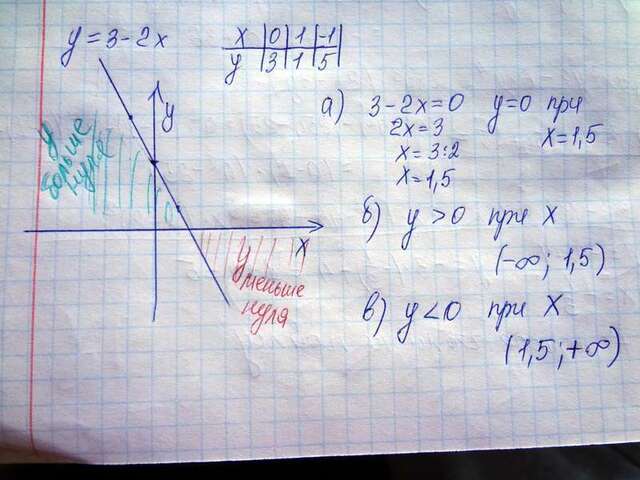 y = 3 - 2x
x | 0 | 1 | -1
y | 3 | 1 | 5
y
y
больше
нуля
x
y
меньше
нуля
а) 3 - 2x = 0 y = 0 при
2x = 3 x = 1,5
x = 3:2
x = 1,5
б) y > 0 при x
(-∞; 1,5)
в) y < 0 при x
(1,5; +∞)